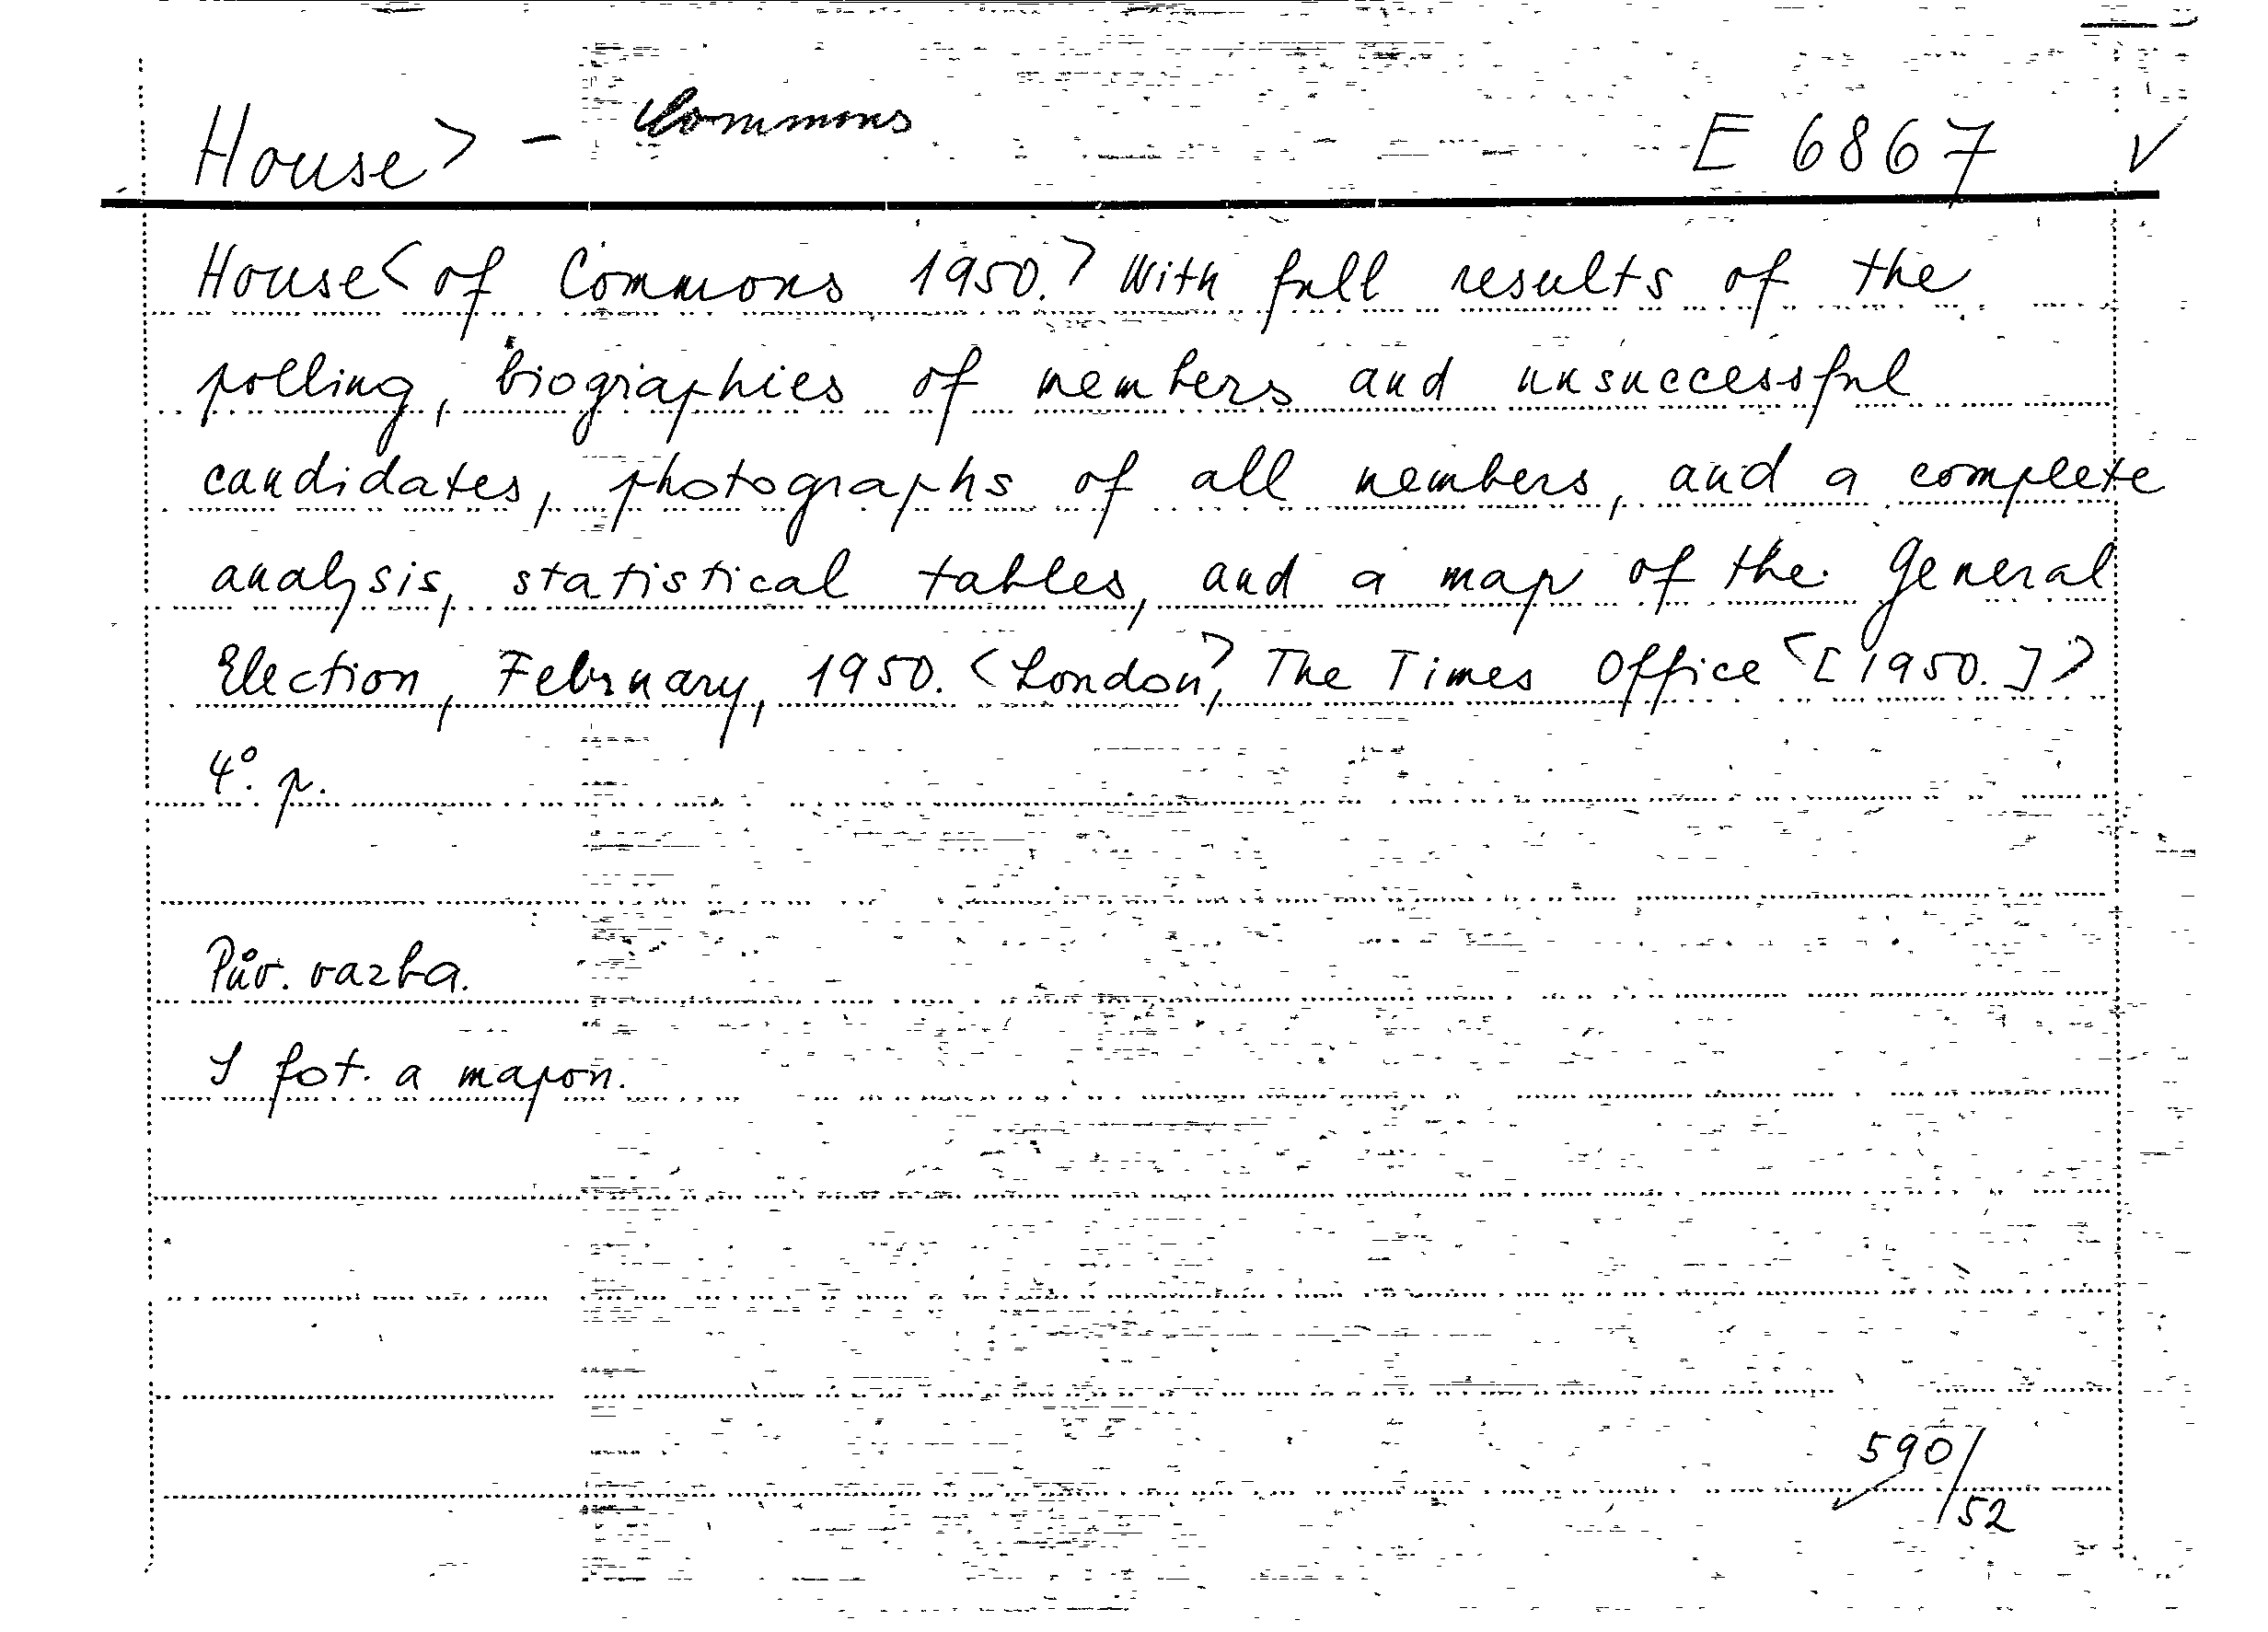 House> - Commons E 6867 √
House< of Commons 1950.> With full results of the
polling, biographies of members and unsuccessful
candidates, photographs of all members, and a complete
analysis, statistical tables, and a map of the General
Election, February, 1950. <London>, The Times Office <[1950.]>
4°. p.
Pův. vazba.
S fot. a mapon.
590/52